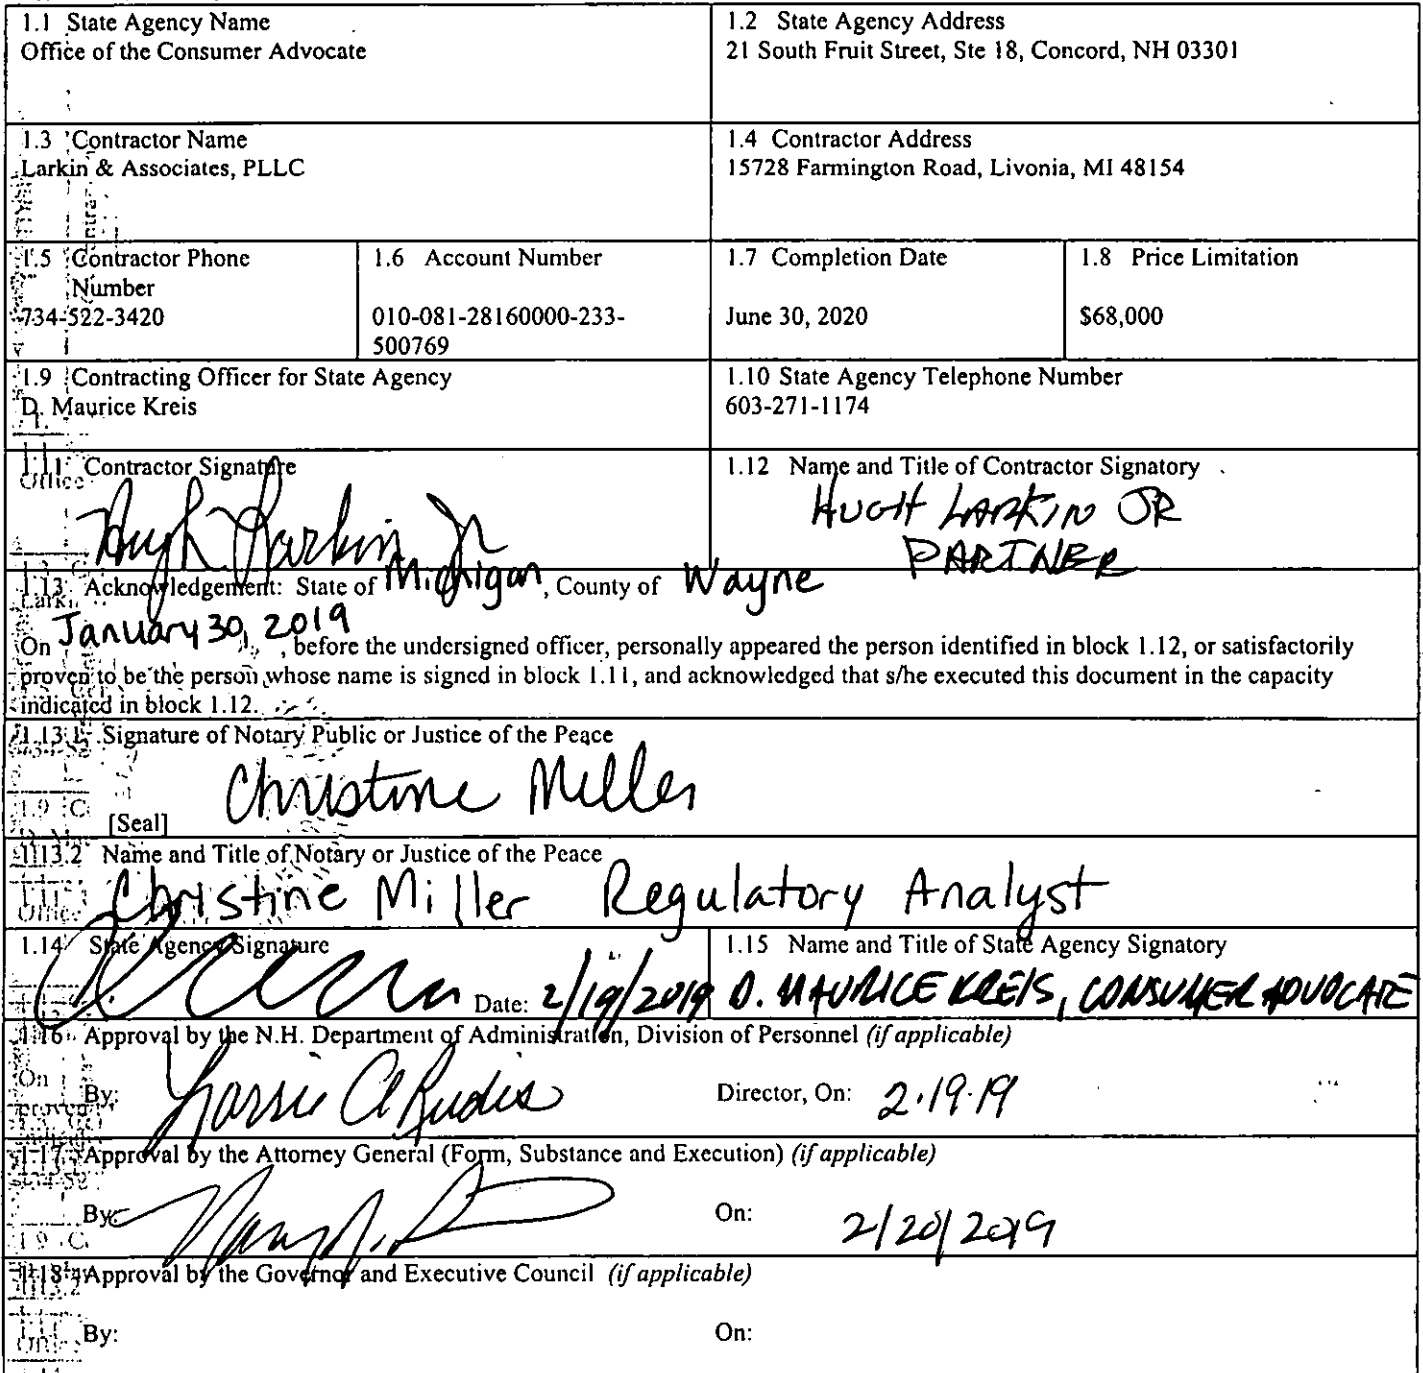 1.1 State Agency Name
Office of the Consumer Advocate
1.2 State Agency Address
21 South Fruit Street, Ste 18, Concord, NH 03301
1.3 Contractor Name
Larkin & Associates, PLLC
1.4 Contractor Address
15728 Farmington Road, Livonia, MI 48154
1.5 Contractor Phone
Number
734-522-3420
1.6 Account Number
010-081-28160000-233-
500769
1.7 Completion Date
June 30, 2020
1.8 Price Limitation
$68,000
1.9 Contracting Officer for State Agency
D. Maurice Kreis
1.10 State Agency Telephone Number
603-271-1174
1.11 Contractor Signature
Hugh Larkin Jr
1.12 Name and Title of Contractor Signatory
HUGH LARKIN JR
PARTNER
1.13 Acknowledgement: State of Michigan, County of Wayne
On January 30, 2019, before the undersigned officer, personally appeared the person identified in block 1.12, or satisfactorily
proven to be the person whose name is signed in block 1.11, and acknowledged that s/he executed this document in the capacity
indicated in block 1.12.
1.13.1 Signature of Notary Public or Justice of the Peace
Christine Miller
[Seal]
1.13.2 Name and Title of Notary or Justice of the Peace
Christine Miller Regulatory Analyst
1.14 State Agency Signature
Date: 2/19/2019
1.15 Name and Title of State Agency Signatory
D. MAURICE KREIS, CONSUMER ADVOCATE
1.16 Approval by the N.H. Department of Administration, Division of Personnel (if applicable)
By:
Director, On: 2.19.19
1.17 Approval by the Attorney General (Form, Substance and Execution) (if applicable)
By:
On: 2/20/2019
1.18 Approval by the Governor and Executive Council (if applicable)
By:
On: